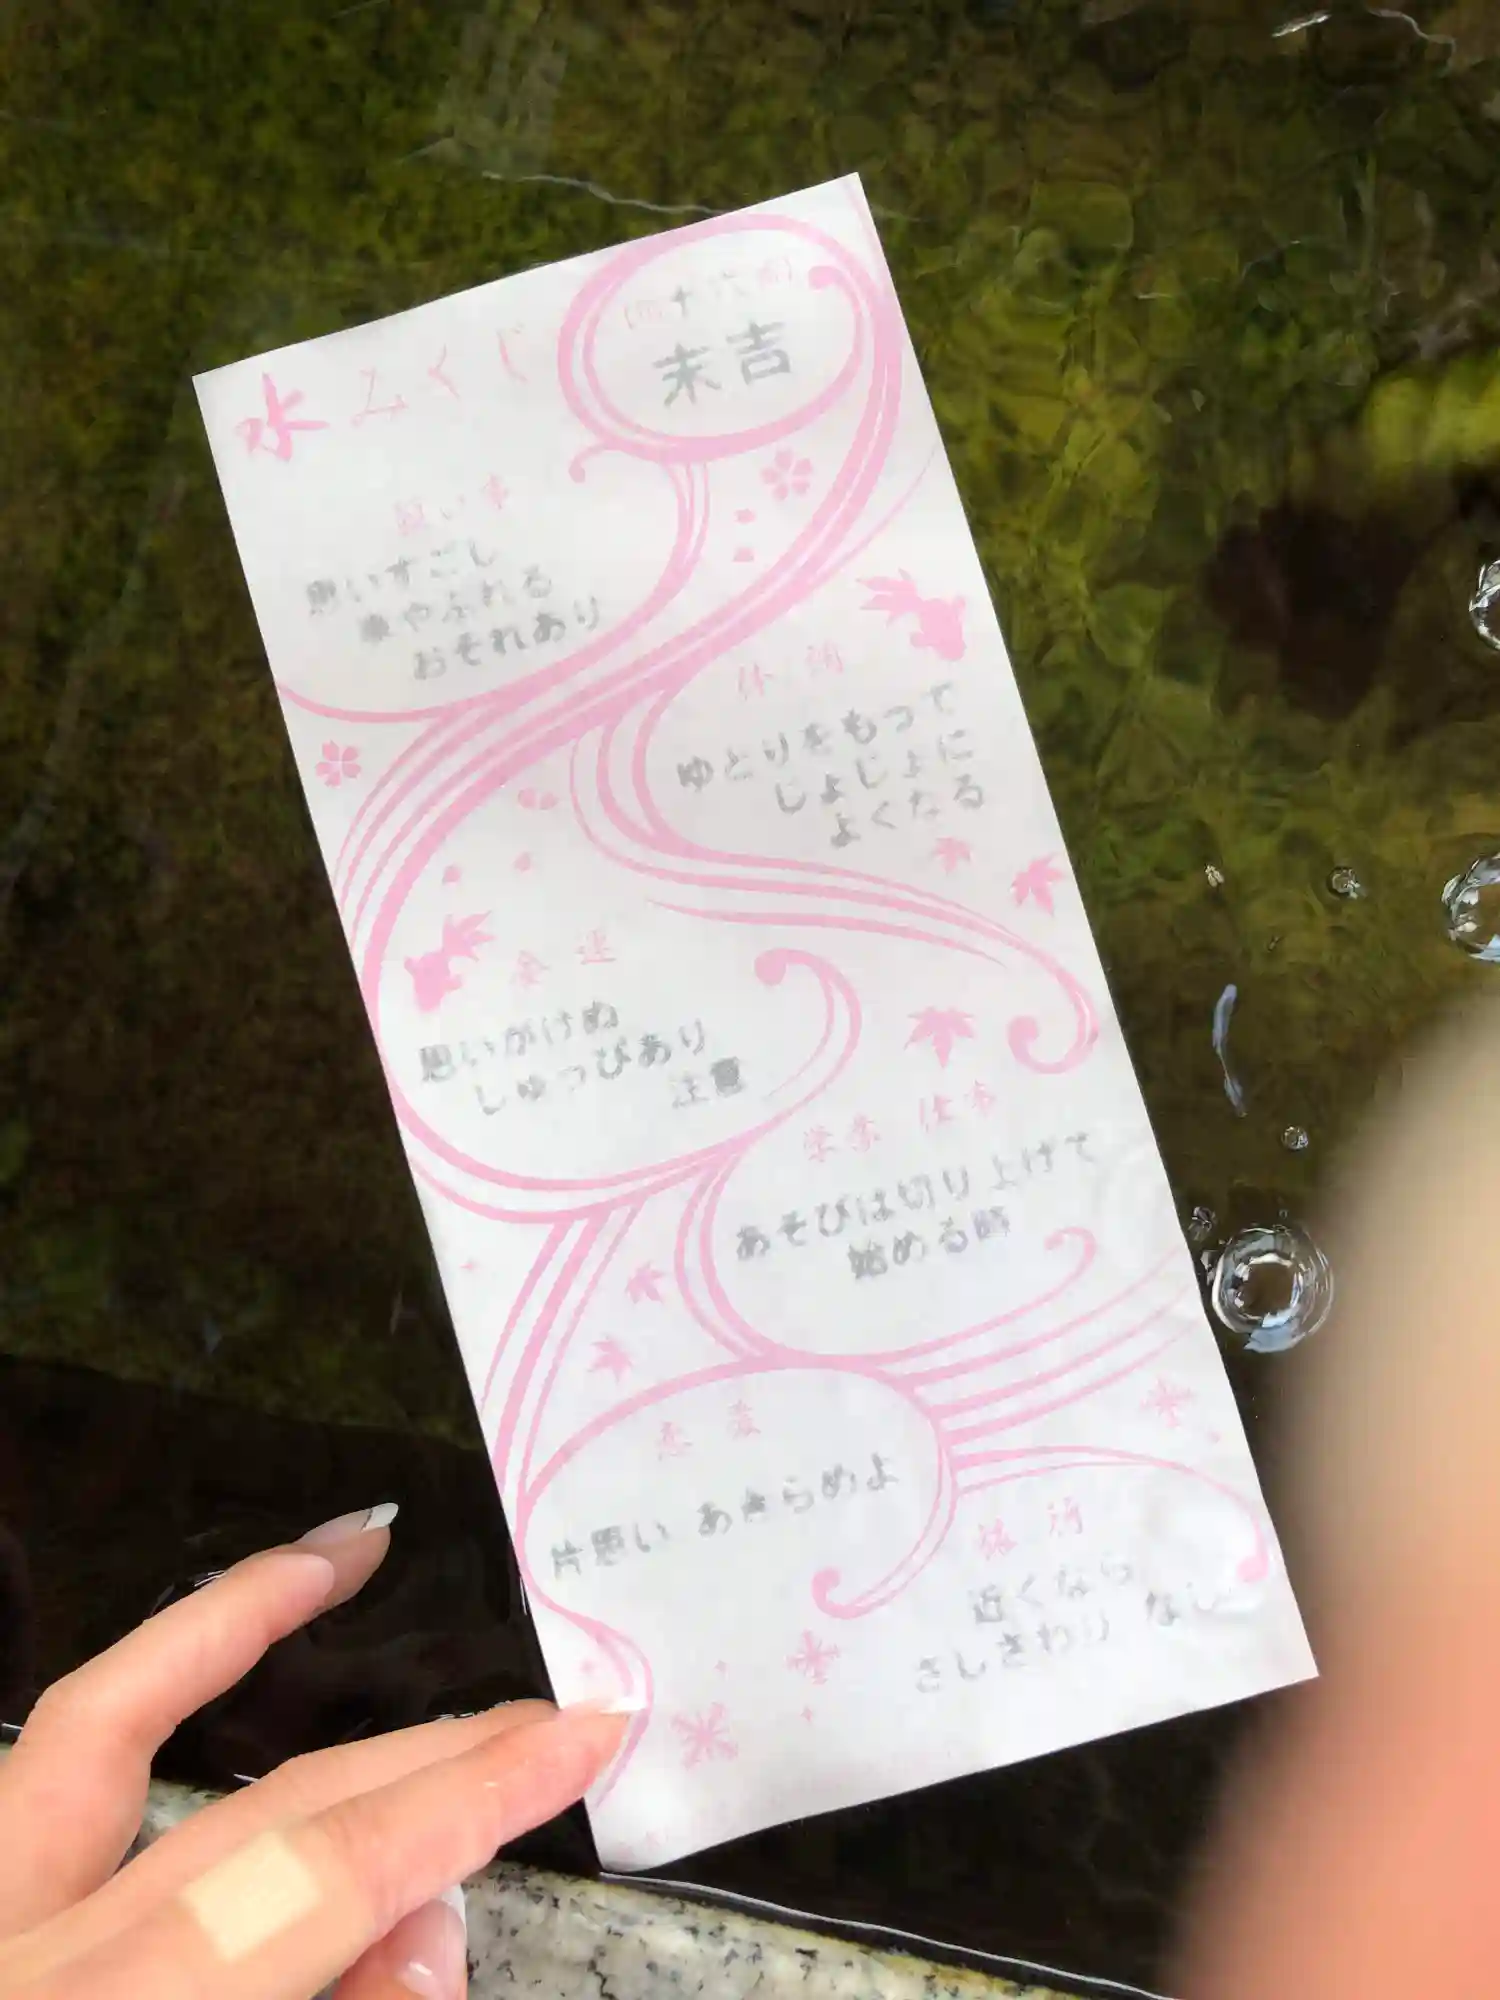 水みくじ
末吉
思い事
思いすごし
おそれあり
体調
ゆとりをもって
じょじょに
よくなる
金運
思いがけぬ
しゅっぴあり
注意
学業 仕事
あそびは切り上げて
始める時
恋愛
片思い あきらめよ
近くなら
さしさわり なし